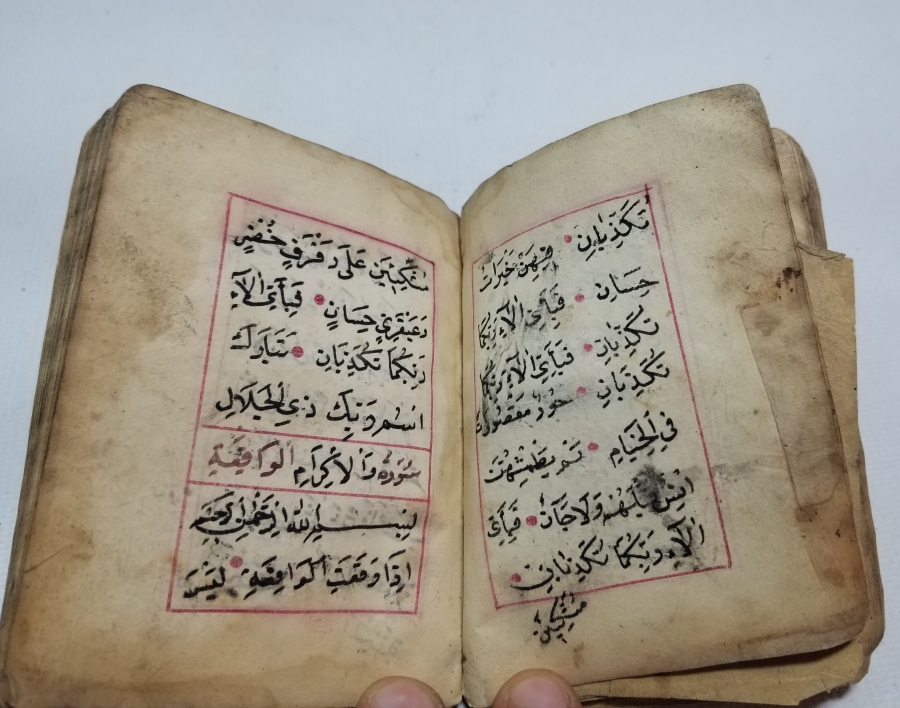 تُكَذِّبَانِ فِيهِنَّ خَيْرَاتٌ
حِسَانٌ فَبِأَيِّ آلَاءِ رَبِّكُمَا
تُكَذِّبَانِ فَبِأَيِّ آلَاءِ رَبِّكُمَا
تُكَذِّبَانِ حُورٌ مَقْصُورَاتٌ
فِي الْخِيَامِ لَمْ يَطْمِثْهُنَّ
اِنْسٌ قَبْلَهُمْ وَلَا جَانٌّ فَبِأَيِّ
آلَاءِ رَبِّكُمَا تُكَذِّبَانِ
مُتَّكِئِينَ
مُتَّكِئِينَ عَلَى رَفْرَفٍ خُضْرٍ
وَعَبْقَرِيٍّ حِسَانٍ فَبِأَيِّ آلَاءِ
رَبِّكُمَا تُكَذِّبَانِ تَبَارَكَ
اسْمُ رَبِّكَ ذِي الْجَلَالِ
سُورَةُ وَالْاِكْرَامِ الْوَاقِعَةِ
بِسْمِ اللهِ الرَّحْمٰنِ الرَّحِيمِ
اِذَا وَقَعَتِ الْوَاقِعَةُ لَيْسَ